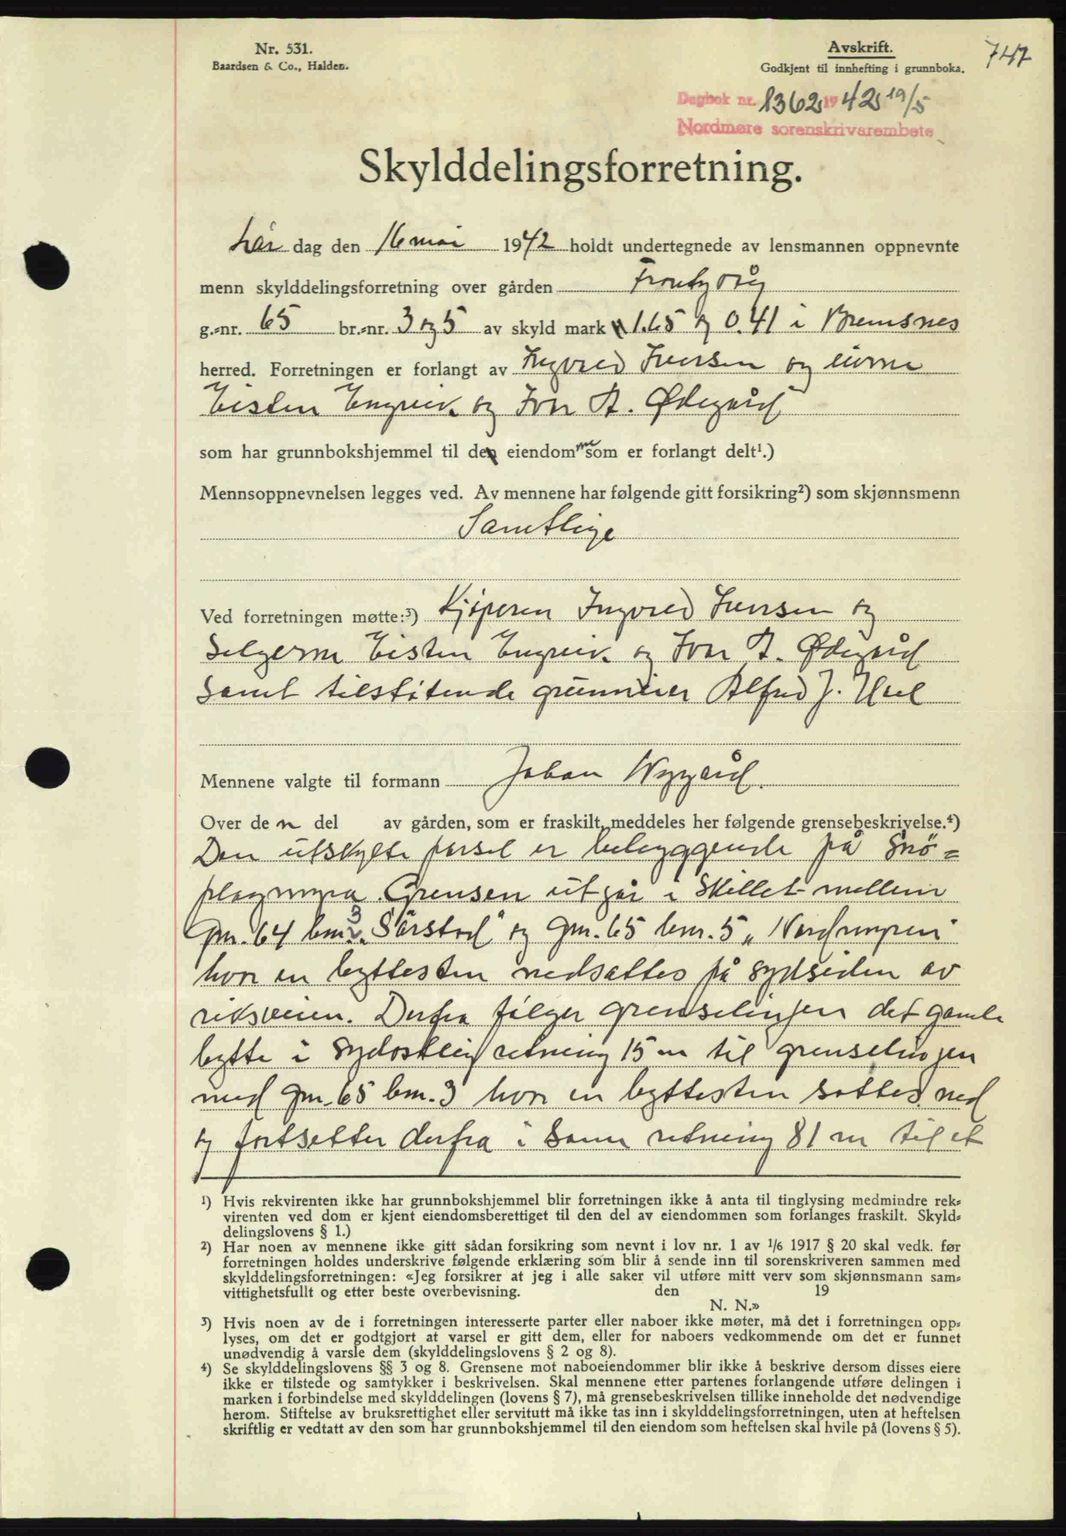 Nr. 531.
Baardsen & Co., Halden.
Avskrift.
Godkjent til innhefting i grunnboka.
747
Dagbok nr. 1362 1942 19/5
Nordmøre sorenskrivarembete
Skylddelingsforretning.
Lør dag den 16 mai 1942 holdt undertegnede av lensmannen oppnevnte
menn skylddelingsforretning over gården
g.-nr. 65 br.-nr. 3 og 5 av skyld mark 1.65 og 0.41 i Bremsnes
herred. Forretningen er forlangt av Ingvald Iversen og eierne
Eisten Engvik og Ivar A. Ødegård
som har grunnbokshjemmel til de eiendommene som er forlangt delt¹.)
Mennsoppnevnelsen legges ved. Av mennene har følgende gitt forsikring²) som skjønnsmenn
Samtlige
Ved forretningen møtte:³) Kjøperen Ingvald Iversen og
Selgerne Eisten Engvik og Ivar A. Ødegård
samt tilstøtende grunneier Alfred J.
Mennene valgte til formann Johan Nygård.
Over den del av gården, som er fraskilt, meddeles her følgende grensebeskrivelse.⁴)
Den utskylte parsel er beliggende på Snö=
plagmyra. Grensen utgår i Skillet mellem
gnr. 64 bnr. 3 „Sørstad" og gnr. 65 bnr. 5 „Nordmyren"
hvor en byttesten nedsattes på sydsiden av
riksveien. Derfra følger grenselinjen det gamle
bytte i sydøstlig retning 15 m til grenselinjen
med gnr. 65 bnr. 3 hvor en byttesten sattes ned
og fortsetter derfra i samme retning 81 m til et
¹) Hvis rekvirenten ikke har grunnbokshjemmel blir forretningen ikke å anta til tinglysing medmindre rek-
virenten ved dom er kjent eiendomsberettiget til den del av eiendommen som forlanges fraskilt. Skyld-
delingslovens § 1.)
²) Har noen av mennene ikke gitt sådan forsikring som nevnt i lov nr. 1 av 1/6 1917 § 20 skal vedk. før
forretningen holdes underskrive følgende erklæring som blir å sende inn til sorenskriveren sammen med
skylddelingsforretningen: «Jeg forsikrer at jeg i alle saker vil utføre mitt verv som skjønnsmann sam-
vittighetsfullt og etter beste overbevisning. den 19
N. N.»
³) Hvis noen av de i forretningen interesserte parter eller naboer ikke møter, må det i forretningen opp-
lyses, om det er godtgjort at varsel er gitt dem, eller for naboers vedkommende om det er funnet
unødvendig å varsle dem (skylddelingslovens § 2 og 8).
⁴) Se skylddelingslovens §§ 3 og 8. Grensene mot naboeiendommer blir ikke å beskrive dersom disses eiere
ikke er tilstede og samtykker i beskrivelsen. Skal mennene etter partenes forlangende utføre delingen i
marken i forbindelse med skylddelingen (lovens § 7), må grensebeskrivelsen tillike inneholde det nødvendige
herom. Stiftelse av bruksrettighet eller servitutt må ikke tas inn i skylddelingsforretningen, uten at heftelsen
skriftlig er vedtatt av den som har grunnbokshjemmel til den eiendom som heftelsen skal hvile på (lovens § 5).